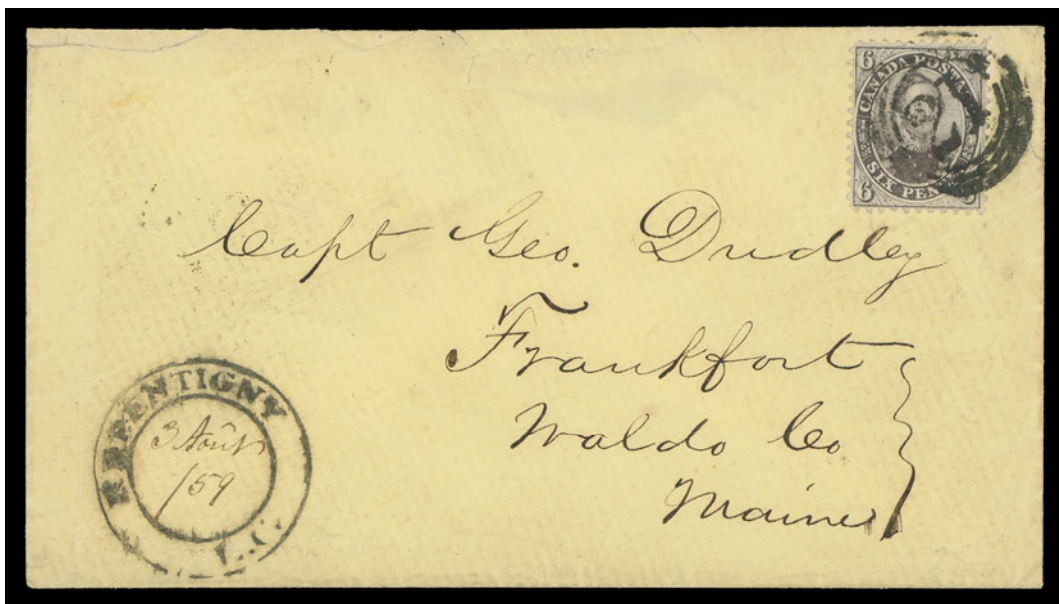 6
CANADA POSTAGE
SIX PEN
6
Capt Geo. Dudley
Frankfort
Waldo Co
Maine
REPENTIGNY
3 Août
/59
L.C.